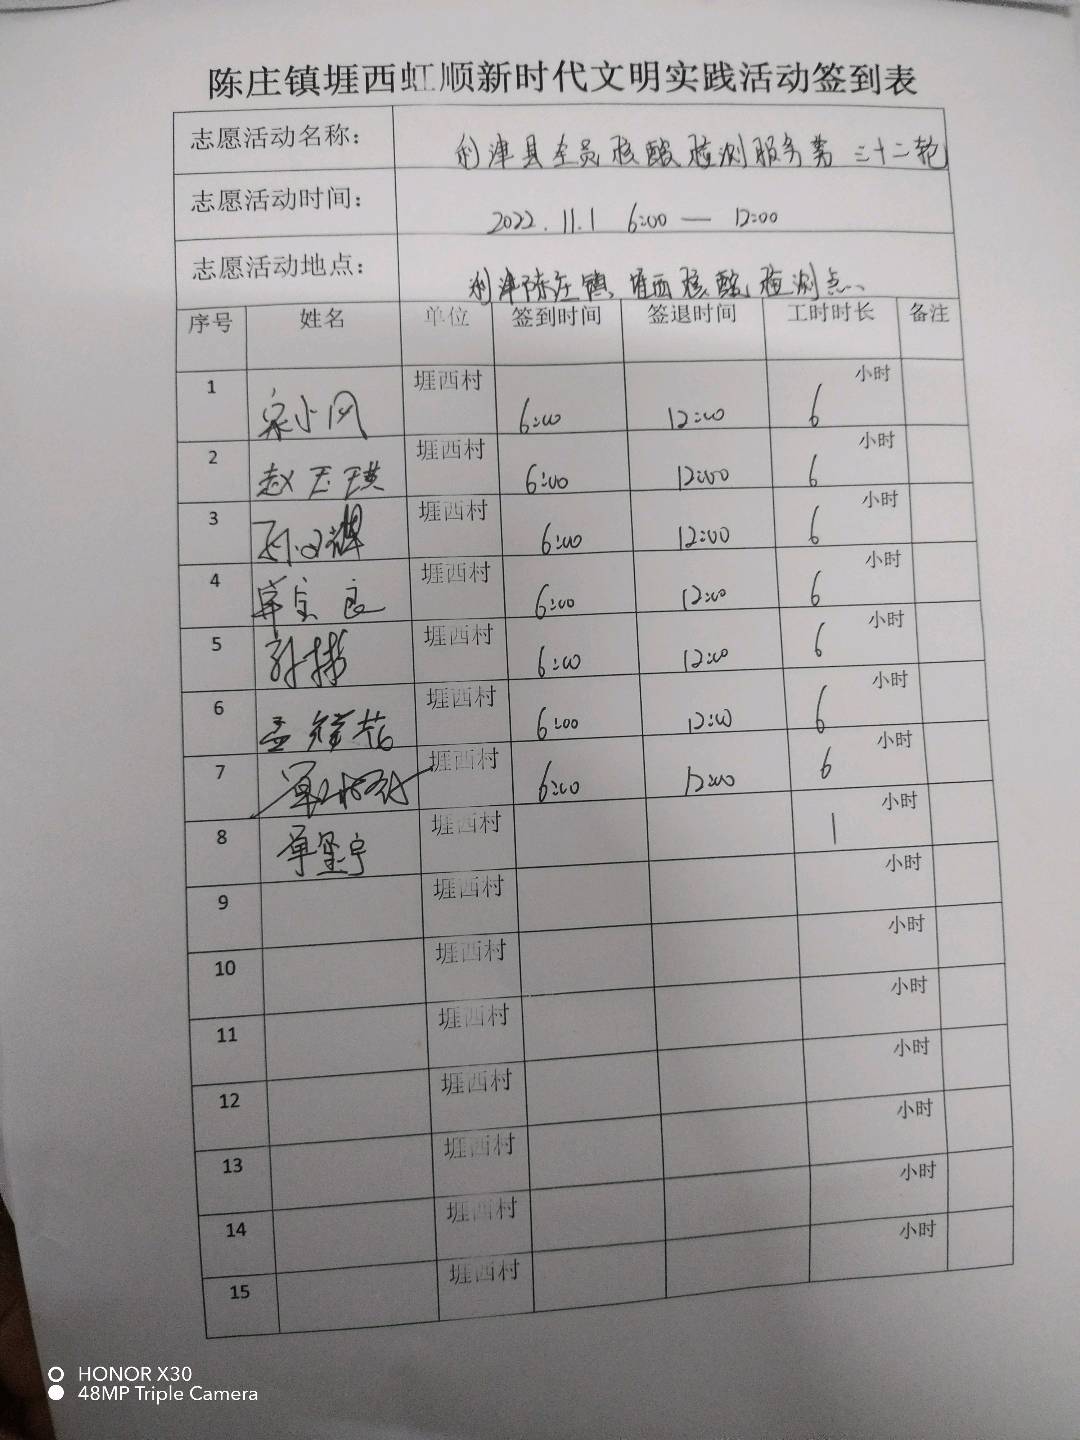 陈庄镇堐西虹顺新时代文明实践活动签到表
志愿活动名称： 利津县全员核酸检测服务第三十二轮
志愿活动时间： 2022.11.1 6:00 — 12:00
志愿活动地点： 利津陈庄镇堐西核酸检测点
序号 姓名 单位 签到时间 签退时间 工时时长 备注
1 宋小风 堐西村 6:00 12:00 6 小时
2 赵玉瑛 堐西村 6:00 12:00 6 小时
3 堐西村 6:00 12:00 6 小时
4 堐西村 6:00 12:00 6 小时
5 堐西村 6:00 12:00 6 小时
6 堐西村 6:00 12:00 6 小时
7 堐西村 6:00 12:00 6 小时
8 堐西村 小时
9 堐西村 小时
10 堐西村 小时
11 堐西村 小时
12 堐西村 小时
13 堐西村 小时
14 堐西村 小时
15 堐西村 小时
HONOR X30
48MP Triple Camera